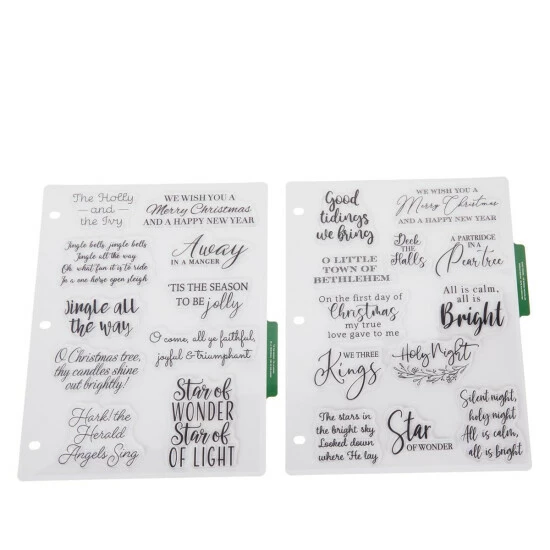 The Holly
and
the Ivy
WE WISH YOU A
Merry Christmas
AND A HAPPY NEW YEAR
Jingle bells, jingle bells
Jingle all the way
Oh what fun it is to ride
In a one horse open sleigh
Away
IN A MANGER
'TIS THE SEASON
TO BE jolly
Jingle all
the way
O come, all ye faithful,
joyful & triumphant
O Christmas tree,
thy candles shine
out brightly!
Star of
WONDER
Star of
OF LIGHT
Hark! the
Herald
Angels Sing
Good
tidings
we bring
WE WISH YOU A
Merry Christmas
AND A HAPPY NEW YEAR
Deck
the
Halls
A PARTRIDGE
IN A
Pear tree
O LITTLE
TOWN OF
BETHLEHEM
On the first day of
Christmas
my true
love gave to me
All is calm,
all is
Bright
WE THREE
Kings
Holy Night
The stars in
the bright sky
Looked down
where He lay
Star
OF WONDER
Silent night,
holy night
All is calm,
all is bright